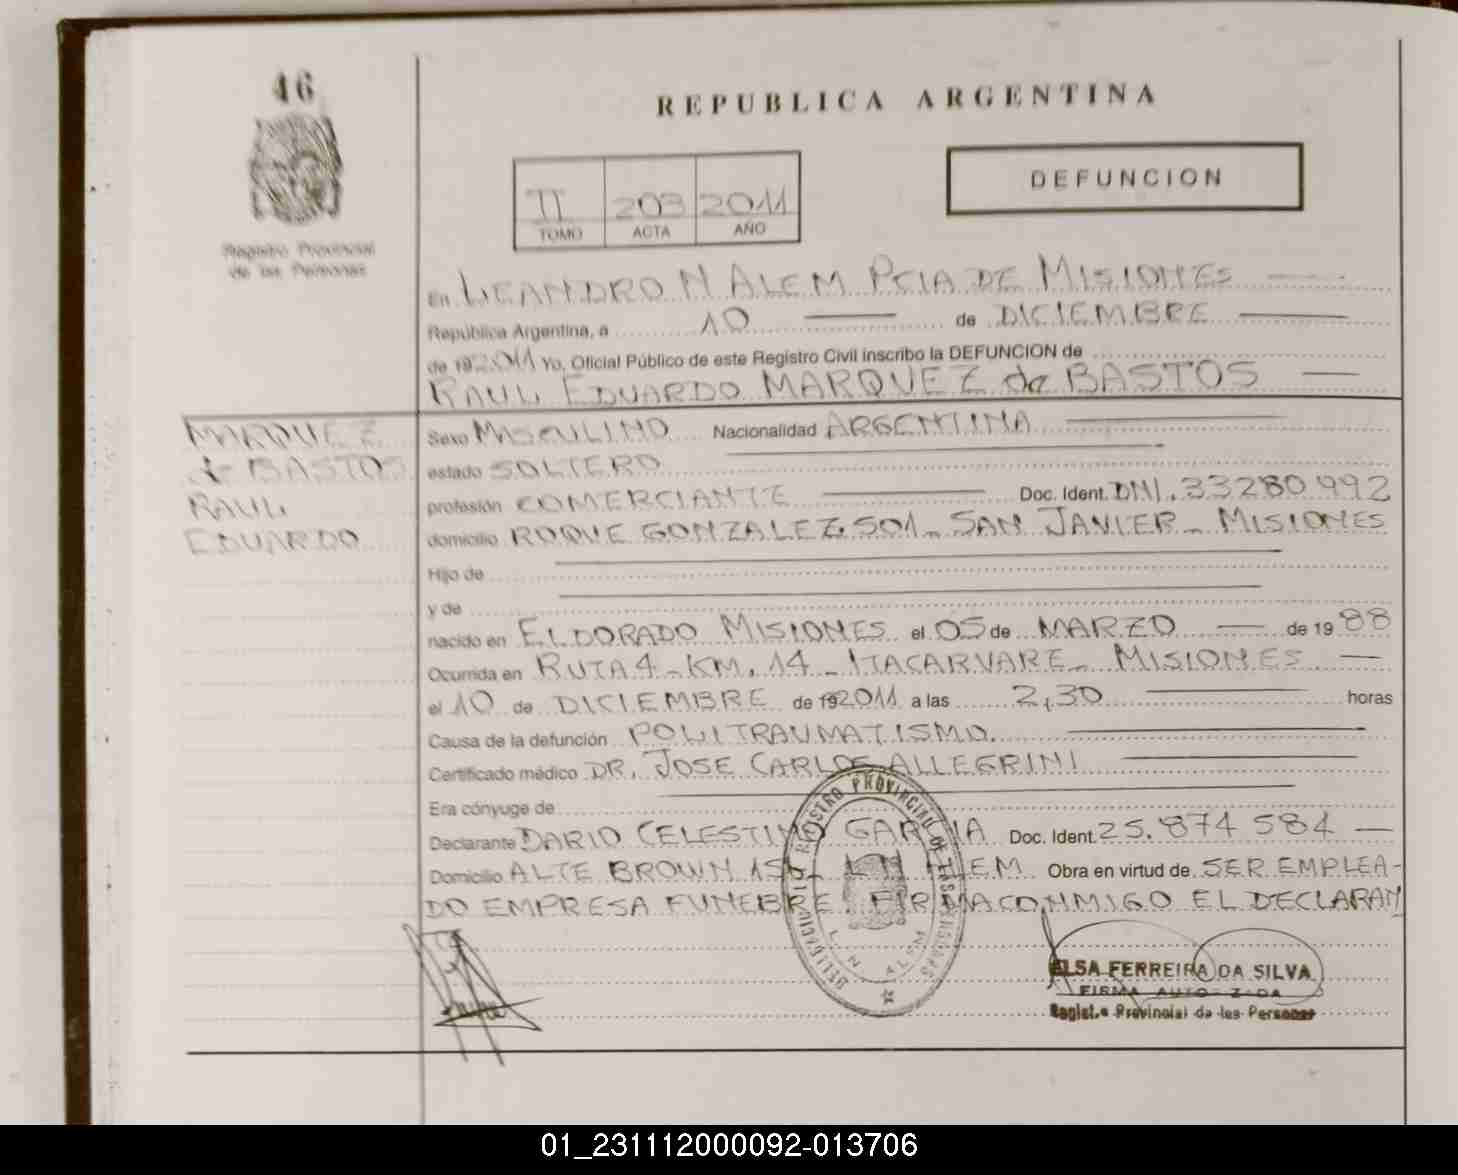 46
REPUBLICA ARGENTINA
DEFUNCION
II 203 2011
TOMO ACTA AÑO
Registro Provincial
de las Personas
En LEANDRO N ALEM PCIA DE MISIONES
República Argentina, a 10 de DICIEMBRE
de 192011 Yo, Oficial Público de este Registro Civil inscribo la DEFUNCION de
RAUL EDUARDO MARQUEZ da BASTOS
MARQUEZ
da BASTOS
RAUL
EDUARDO
Sexo MASCULINO Nacionalidad ARGENTINA
estado SOLTERO
profesión COMERCIANTE Doc. Ident. DNI. 33280992
domicilio ROQUE GONZALEZ 501 - SAN JAVIER - MISIONES
Hijo de
y de
nacido en ELDORADO MISIONES el 05 de MARZO de 1988
Ocurrida en RUTA 4 - KM. 14 - ITACARUARE - MISIONES
el 10 de DICIEMBRE de 192011 a las 2,30 horas
Causa de la defunción POLITRAUMATISMO.
Certificado médico DR. JOSE CARLOS ALLEGRINI
Era cónyuge de
Declarante DARIO CELESTINO GARCIA Doc. Ident. 25.874 584
Domicilio ALTE BROWN L N ALEM Obra en virtud de SER EMPLEA-
DO EMPRESA FUNEBRE. FIRMA CONMIGO EL DECLARAN
TE
DELEGACION REGISTRO PROVINCIAL DE LAS PERSONAS
L. N. ALEM
ELSA FERREIRA DA SILVA
FIRMA AUTORIZADA
Regist.o Provincial de las Personas
01_231112000092-013706